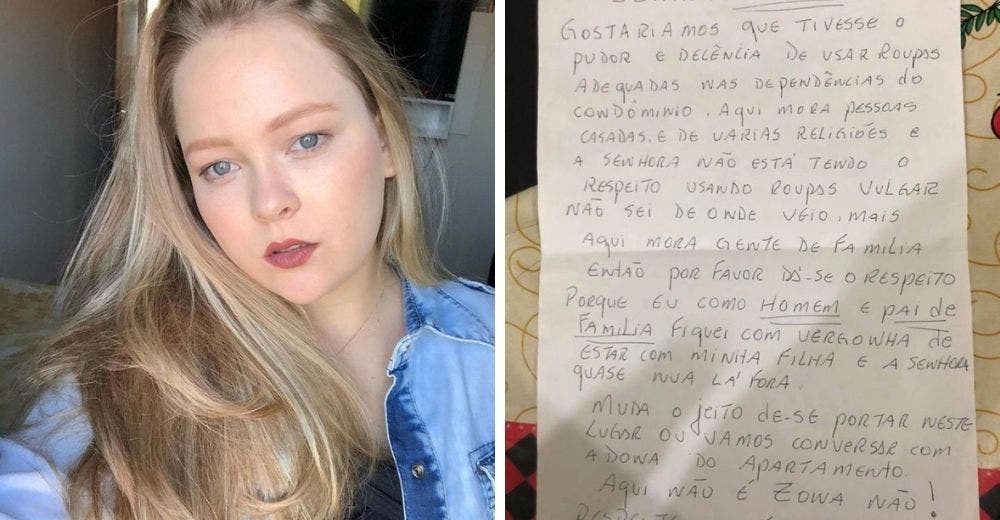 GOSTARIAMOS QUE TIVESSE O
PUDOR E DECÊNCIA DE USAR ROUPAS
ADEQUADAS NAS DEPENDÊNCIAS do
CONDÔMINIO. AQUI MORA PESSOAS
CASADAS. E DE VARIAS RELIGIÕES e
A SENHORA NÃO ESTÁ TENDO O
RESPEITO USANDO ROUPAS VULGAR
NÃO SEI DE ONDE VEIO. MAIS
AQUI MORA GENTE DE FAMILIA
ENTÃO POR FAVOR DÁ-SE O RESPEITO
PORQUE EU COMO HOMEM E pai de
FAMILIA FIQUEI COM VERGONHA de
ESTAR COM MINHA FILHA E A SENHORA
QUASE NUA LÁ FORA.
MUDA O jEITO DE-SE PORTAR NESTE
LUGAR OU VAMOS CONVERSAR COM
A DONA DO APARTAMENTO.
AQUI NÃO É ZONA NÃO!